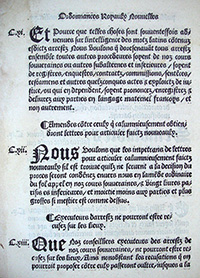 Ordonnances Royaulx Nouvelles
C.xi. Et pource que telles choses sont souventesfois ad
venues sur lintelligence des motz latins contenuz
esdictz arrestz. Nous voulons q̃ doresenavant tous arrestz
ensemble toutes autres procedeures soyent de noz cours
souveraines ou autres subalternes et inferieures, soyent
de registres, enquestes, contractz, commissions, sentences,
testamens et autres quelzconques actes & exploictz de iusti-
ce, ou qui en dependent, soyent prononcez, enregistrez &
delivrez aux parties en langage maternel francoys, et
non autrement.
Amendes cõtre ceulx q̃ calumnieusement obtien
dront lettres pour articuler faictz nouveaulx.
C.xii. Nous voulons que les impetrans de lettres
pour articuler calumnieusement faictz
nouveaulx sil est trouve quilz ne servent a la decision du
proces soyent condãnez envers nous en lamẽde ordinaire
du fol appel en noz cours souveraines, & vingt livres pari
sis es inferieures, et moictie moins aux parties et plus
grosse si mestier est comme dessus.
Executeurs darrestz ne pourront estre re-
cusez sur les lieux.
C.xiii. Que noz conseilliers executeurs des arrestz de
noz cours souveraines, ne pourront estre re-
cusez sur les lieux. Ains nonobstant les recusations q̃ on
pourroit proposer cõtre eulx passeront oultre, iusques a